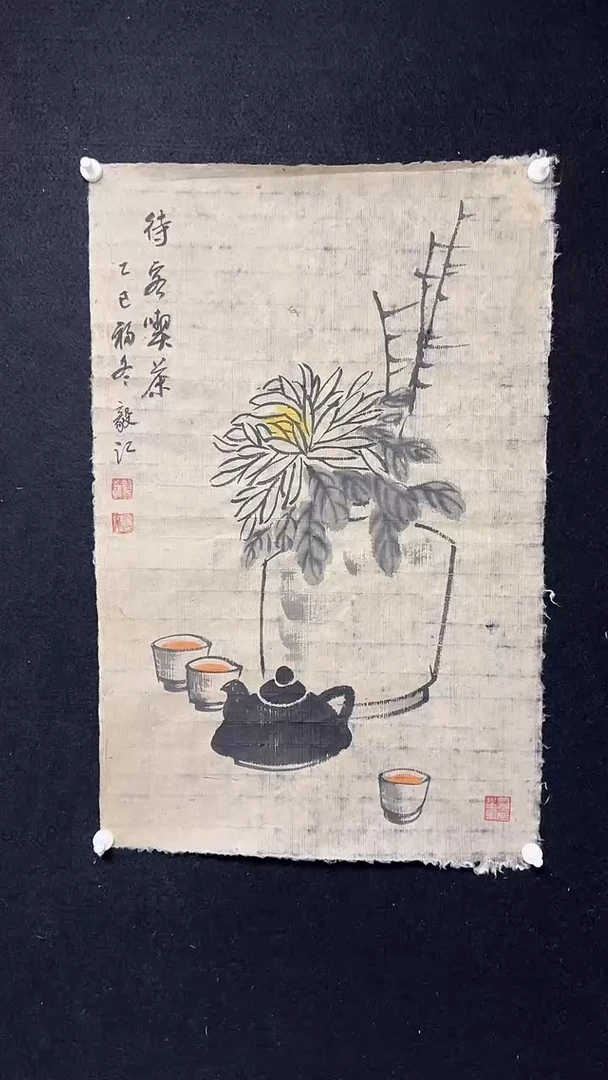 待客喫茶
乙巳初冬 毅江